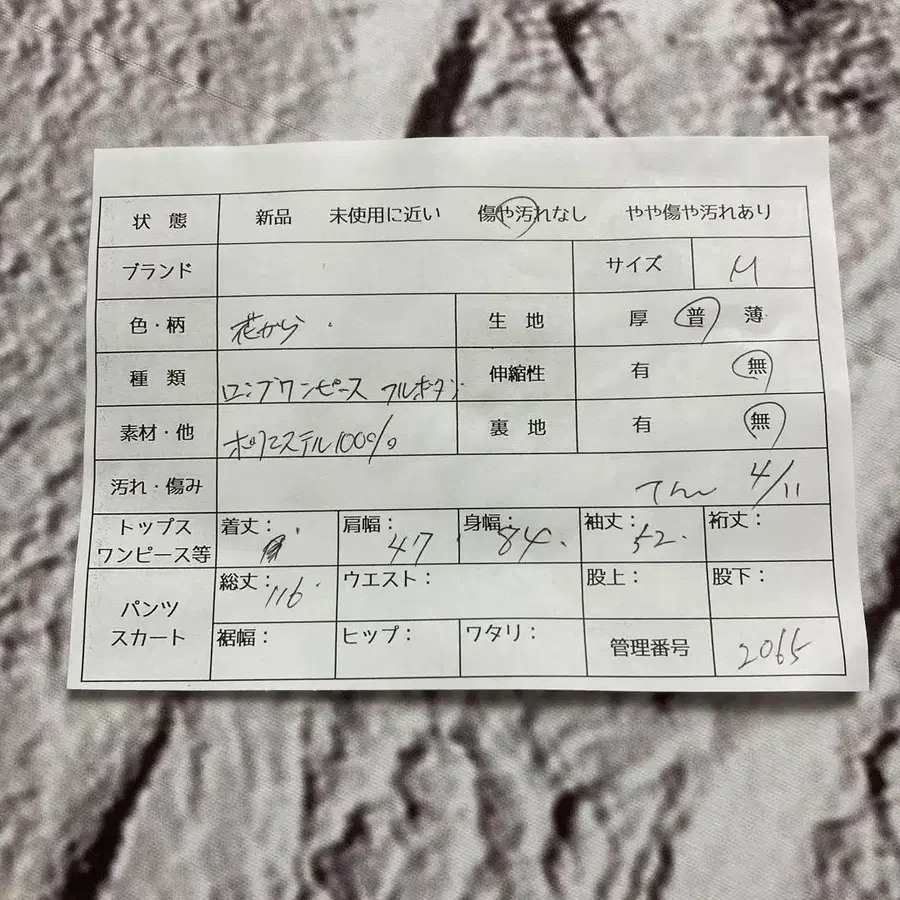 状態 新品 未使用に近い 傷や汚れなし やや傷や汚れあり
ブランド サイズ M
色・柄 花がら 生地 厚 普 薄
種類 ロングワンピース フルボタン 伸縮性 有 無
素材・他 ポリエステル100% 裏地 有 無
汚れ・傷み 4/11
トップス ワンピース等 着丈： 肩幅：47 身幅：84. 袖丈：52. 裄丈：
パンツ スカート 総丈：116 ウエスト： 股上： 股下：
裾幅： ヒップ： ワタリ： 管理番号 2065